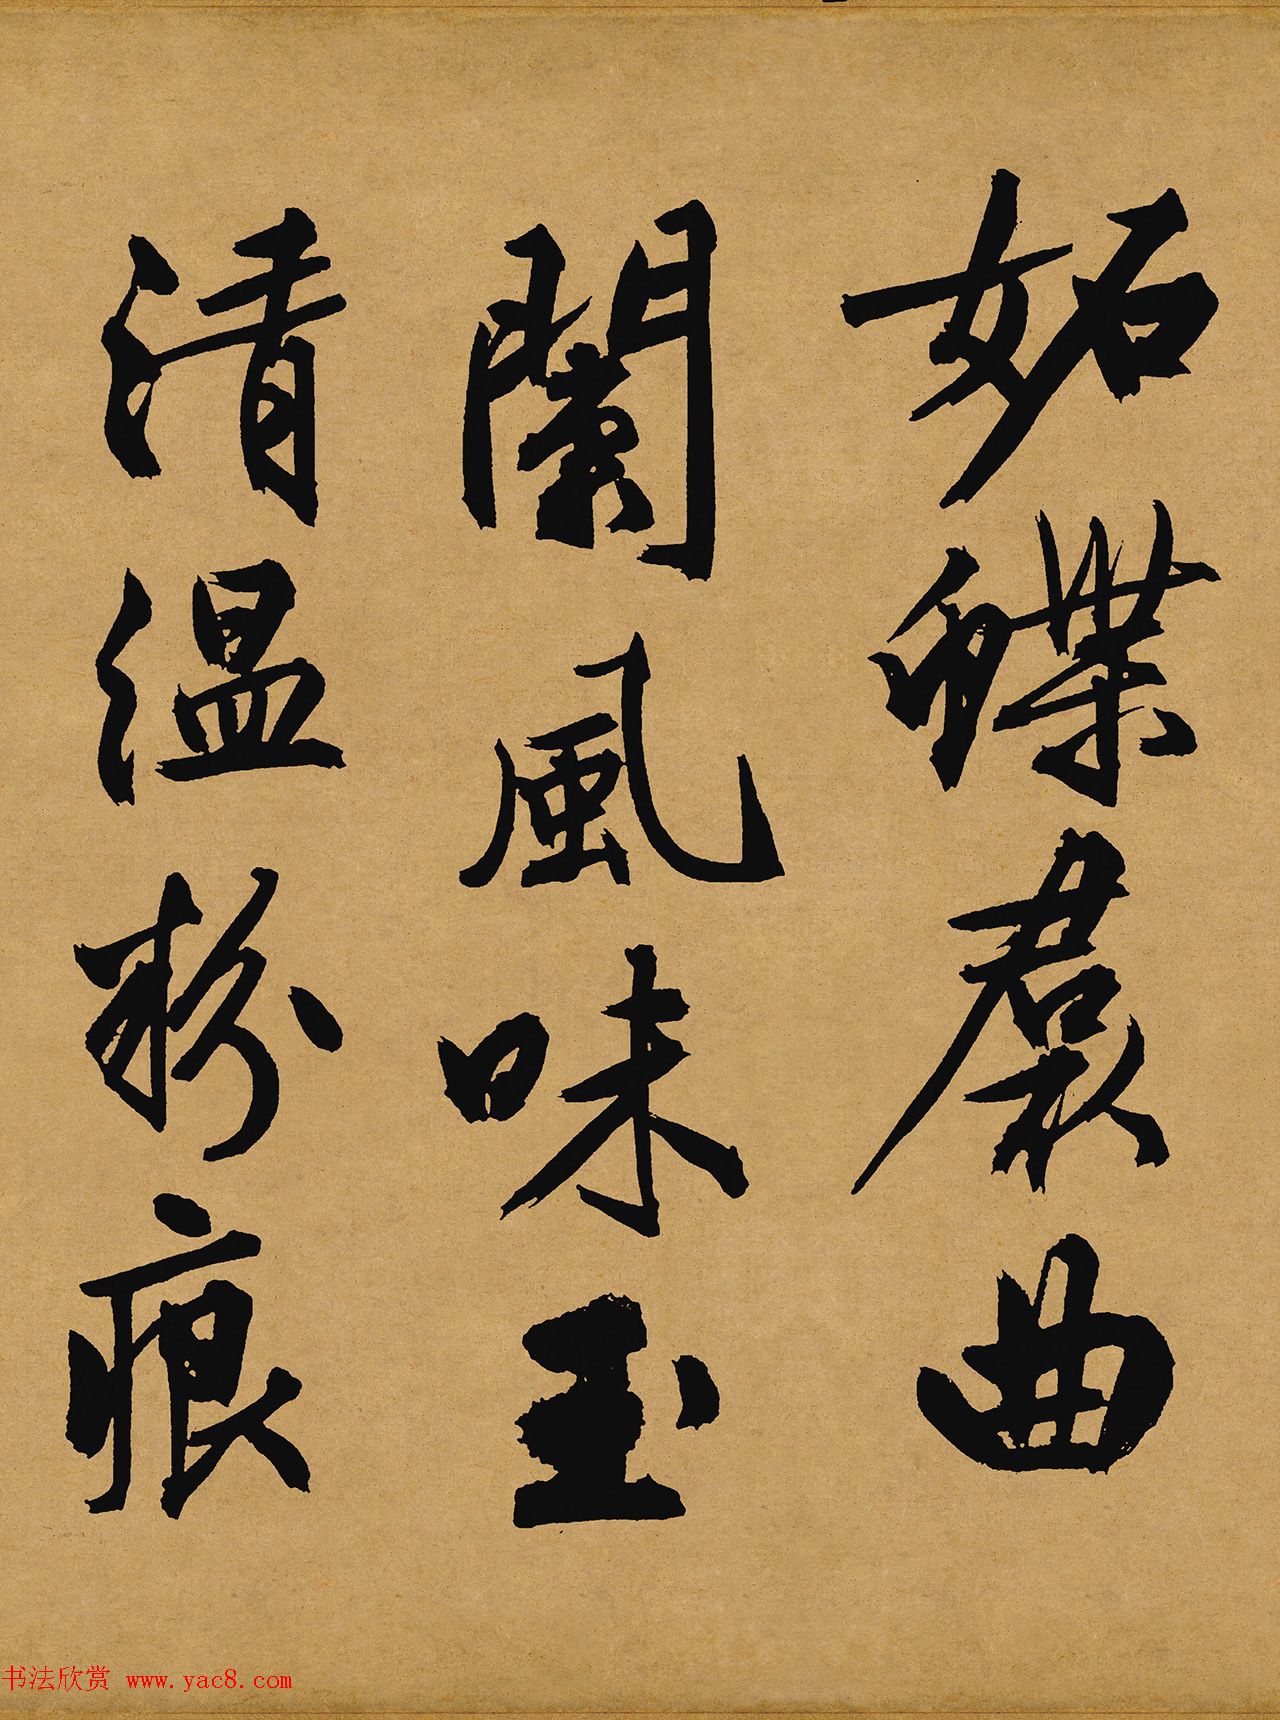 妬蝶裠曲
闌風味玉
清温粉痕
书法欣赏 www.yac8.com